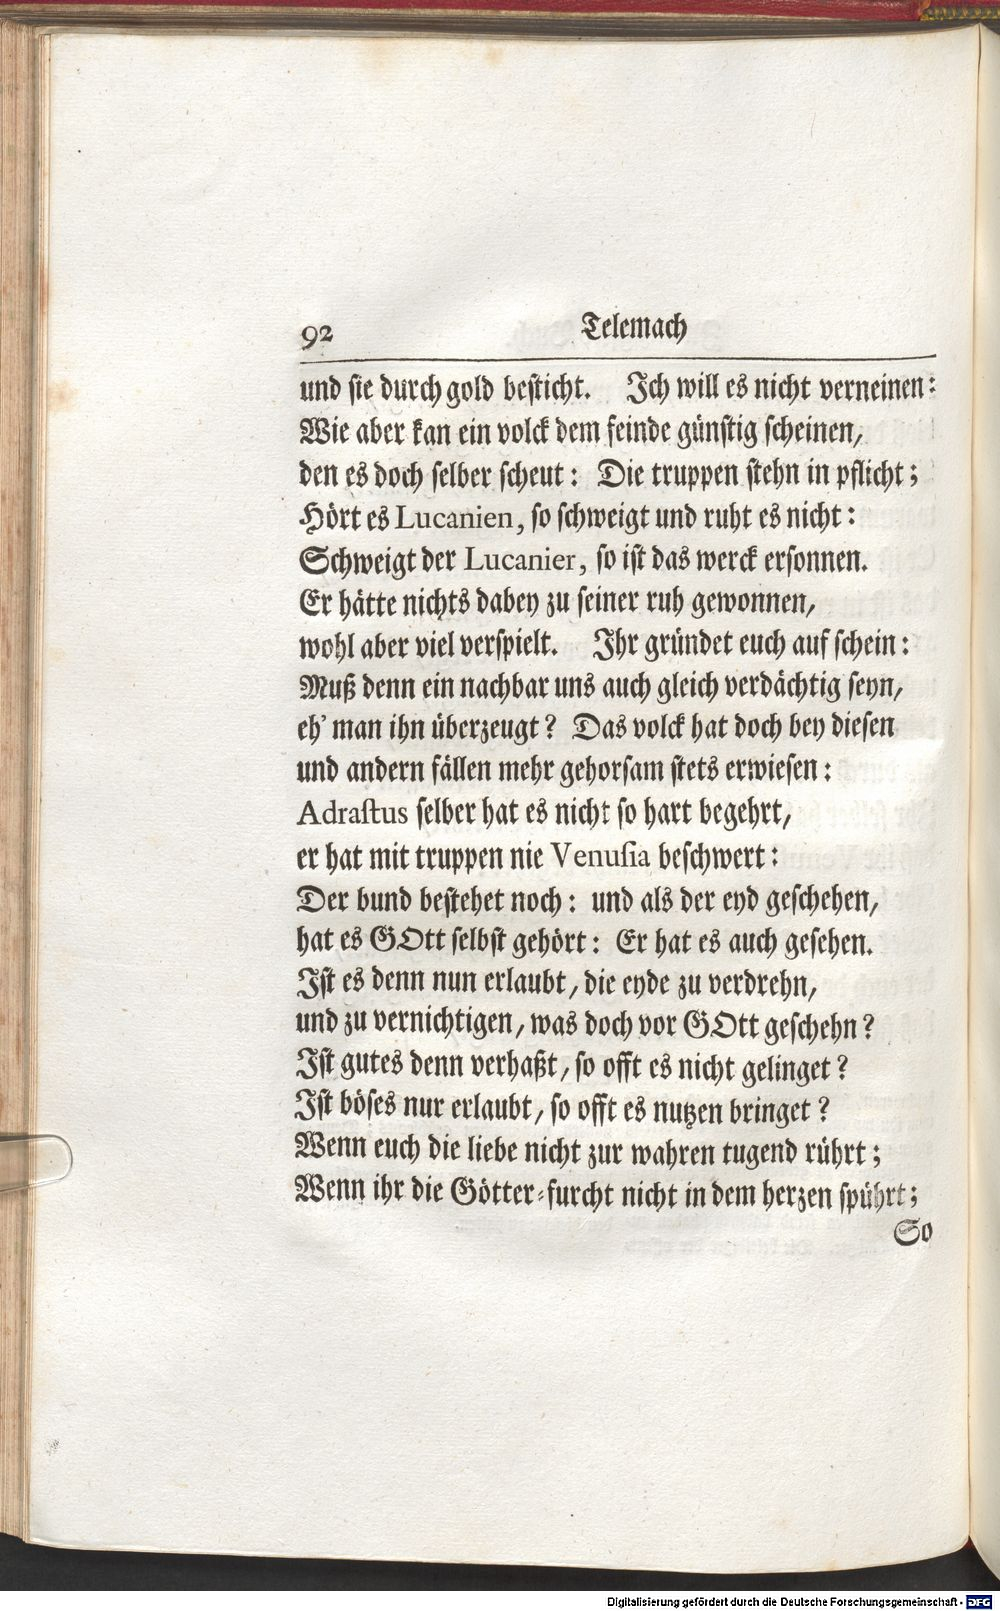 92 Telemach
und sie durch gold besticht. Ich will es nicht verneinen:
Wie aber kan ein volck dem feinde günstig scheinen,
den es doch selber scheut: Die truppen stehn in pflicht;
Hört es Lucanien, so schweigt und ruht es nicht:
Schweigt der Lucanier, so ist das werck ersonnen.
Er hätte nichts dabey zu seiner ruh gewonnen,
wohl aber viel verspielt. Ihr gründet euch auf schein:
Muß denn ein nachbar uns auch gleich verdächtig seyn,
eh' man ihn überzeugt? Das volck hat doch bey diesen
und andern fällen mehr gehorsam stets erwiesen:
Adrastus selber hat es nicht so hart begehrt,
er hat mit truppen nie Venusia beschwert:
Der bund bestehet noch: und als der eyd geschehen,
hat es GOtt selbst gehört: Er hat es auch gesehen.
Ist es denn nun erlaubt, die eyde zu verdrehn,
und zu vernichtigen, was doch vor GOtt geschehn?
Ist gutes denn verhaßt, so offt es nicht gelinget?
Ist böses nur erlaubt, so offt es nutzen bringet?
Wenn euch die liebe nicht zur wahren tugend rührt;
Wenn ihr die Götter-furcht nicht in dem herzen spührt;
So
Digitalisierung gefördert durch die Deutsche Forschungsgemeinschaft - DFG